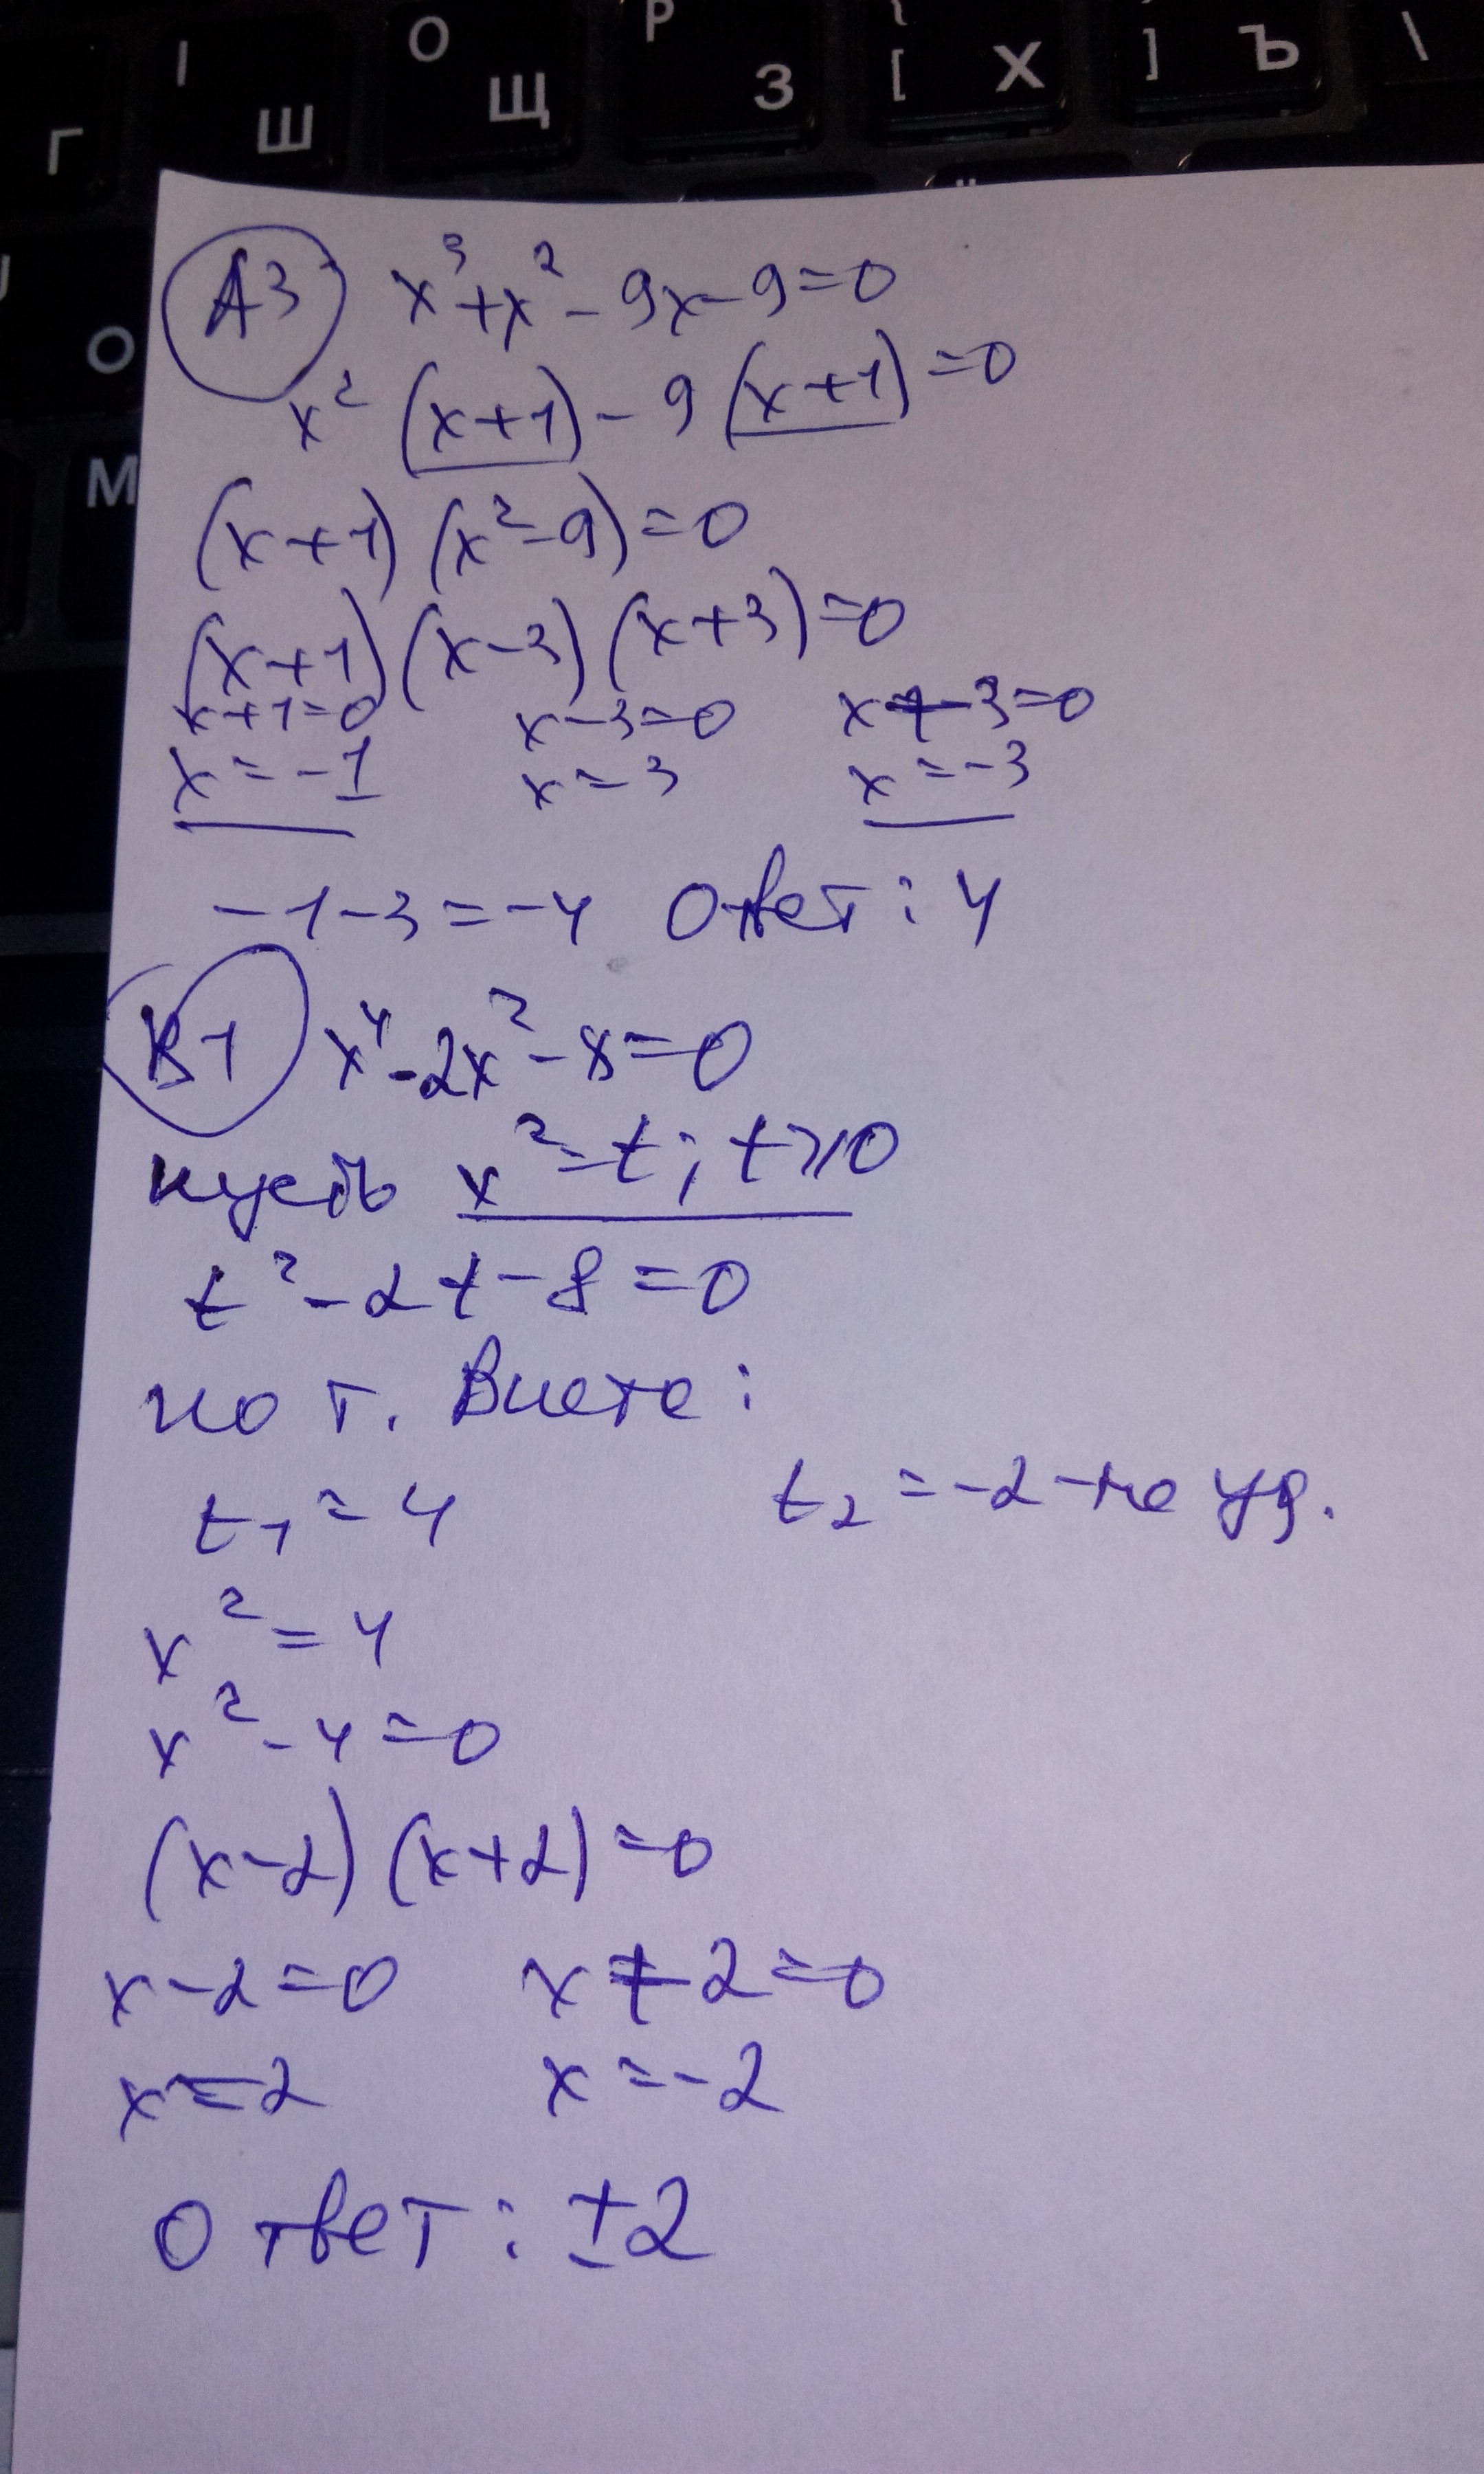 Г I Ш O Щ P З { [ Х ] Ъ \
О
М
А3 x³+x²-9x-9=0
x²(x+1)-9(x+1)=0
(x+1)(x²-9)=0
(x+1)(x-3)(x+3)=0
x+1=0 x-3=0 x+3=0
x=-1 x=3 x=-3
-1-3=-4 Ответ: 4
В1 x⁴-2x²-8=0
пусть x²=t; t⩾0
t²-2t-8=0
по т. Виета:
t₁=4 t₂=-2-не уд.
x²=4
x²-4=0
(x-2)(x+2)=0
x-2=0 x+2=0
x=2 x=-2
Ответ: ±2